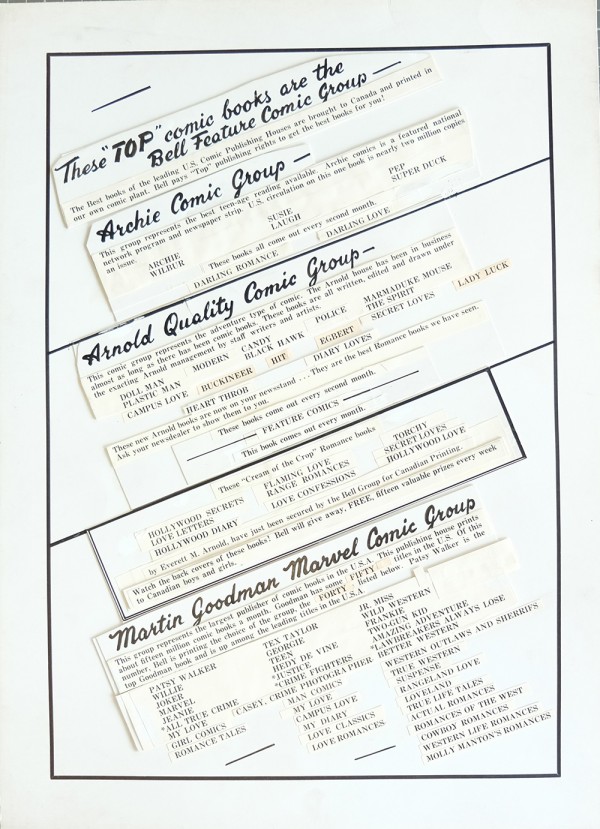 These "TOP" comic books are the
Bell Feature Comic Group —
The Best books of the leading U.S. Comic Publishing Houses are brought to Canada and printed in
our own comic plant. Bell pays "Top" publishing rights to get the best books for you!
Archie Comic Group —
This group represents the best teen-age reading available. Archie comics is a featured national
network program and newspaper strip. U.S. circulation on this one book is nearly two million copies
an issue.
ARCHIE SUSIE PEP
WILBUR LAUGH SUPER DUCK
These books all come out every second month.
DARLING ROMANCE DARLING LOVE
Arnold Quality Comic Group —
This comic group represents the adventure type of comic. The Arnold house has been in business
almost as long as there has been comic books. These books are all written, edited and drawn under
the exacting Arnold management by staff writers and artists.
DOLL MAN MODERN CANDY POLICE MARMADUKE MOUSE LADY LUCK
PLASTIC MAN BLACK HAWK THE SPIRIT
CAMPUS LOVE BUCKINEER HIT EGBERT SECRET LOVES
HEART THROB DIARY LOVES
These new Arnold books are now on your newsstand . . . They are the best Romance books we have seen.
Ask your newsdealer to show them to you.
These books come out every second month.
FEATURE COMICS
This book comes out every month.
These "Cream of the Crop" Romance books
HOLLYWOOD SECRETS FLAMING LOVE TORCHY
LOVE LETTERS RANGE ROMANCES SECRET LOVES
HOLLYWOOD DIARY LOVE CONFESSIONS HOLLYWOOD LOVE
by Everett M. Arnold, have just been secured by the Bell Group for Canadian Printing.
Watch the back covers of these books! Bell will give away, FREE, fifteen valuable prizes every week
to Canadian boys and girls.
Martin Goodman Marvel Comic Group
This group represents the largest publisher of comic books in the U.S.A. This publishing house prints
about fifteen million comic books a month. Goodman has some FIFTY titles in the U.S. Of this
number, Bell is printing the choice of the group, the FORTY listed below. Patsy Walker is the
top Goodman book and is up among the leading titles in the U.S.A.
PATSY WALKER TEX TAYLOR JR. MISS
WILLIE GEORGIE WILD WESTERN
JOKER TEEN FRANKIE
MARVEL HEDY DE VINE TWO-GUN KID
JEANIE *JUSTICE AMAZING ADVENTURE
*ALL TRUE CRIME *CRIME FIGHTERS *LAWBREAKERS ALWAYS LOSE
MY LOVE CASEY, CRIME PHOTOGRAPHER BETTER WESTERN
GIRL COMICS MAN COMICS WESTERN OUTLAWS AND SHERIFFS
ROMANCE TALES MY LOVE TRUE WESTERN
CAMPUS LOVE SUSPENSE
MY DIARY RANGELAND LOVE
LOVE CLASSICS LOVELAND
LOVE ROMANCES TRUE LIFE TALES
ACTUAL ROMANCES
ROMANCES OF THE WEST
COWBOY ROMANCES
WESTERN LIFE ROMANCES
MOLLY MANTON'S ROMANCES